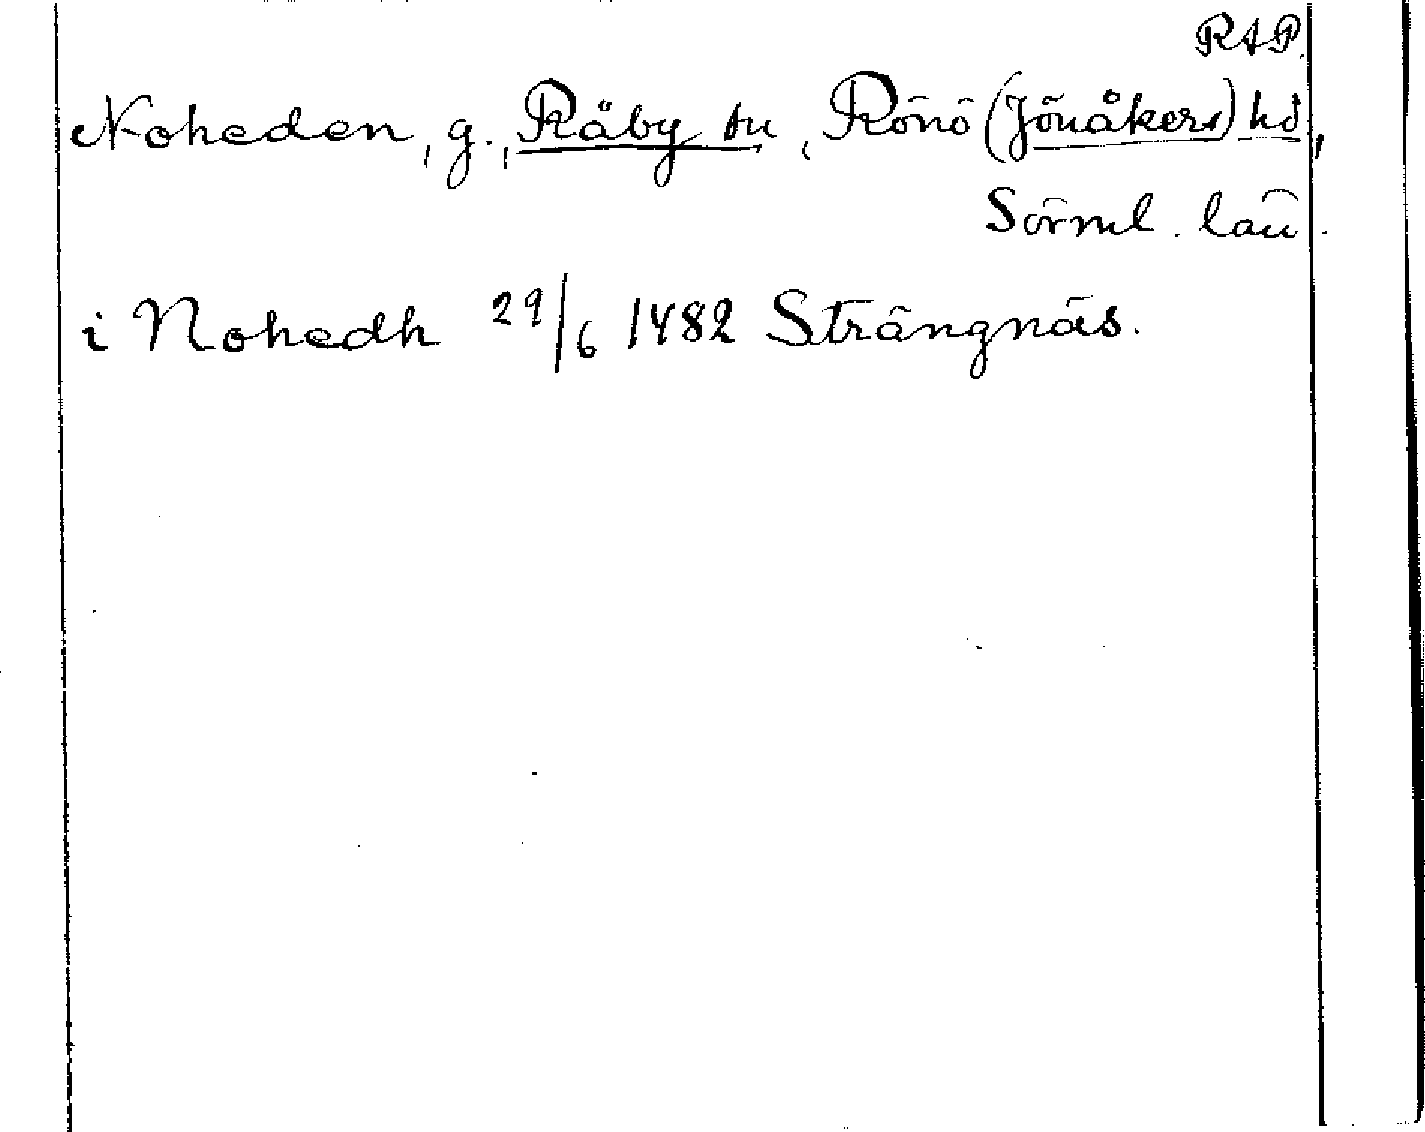 RAP.
Noheden, g., Räby sn, Rönö (Jönåkers) hd,
Sörml. län.
i Nohedh 29/6 1482 Strängnäs.